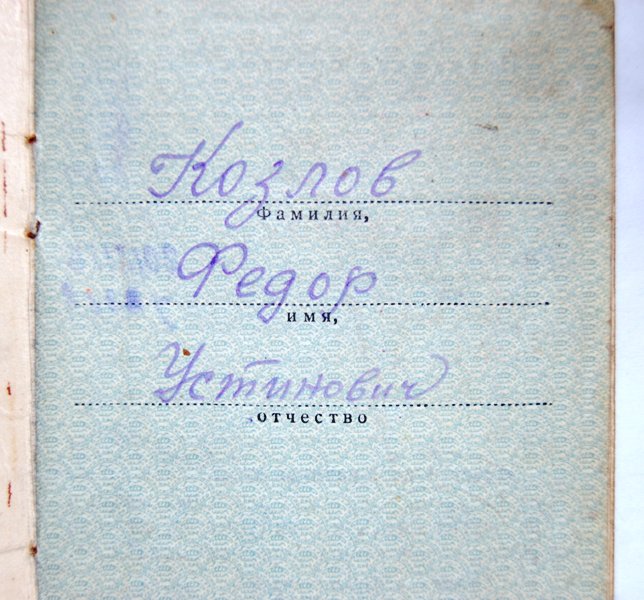 Козлов
Фамилия,
Федор
имя,
Устинович
отчество